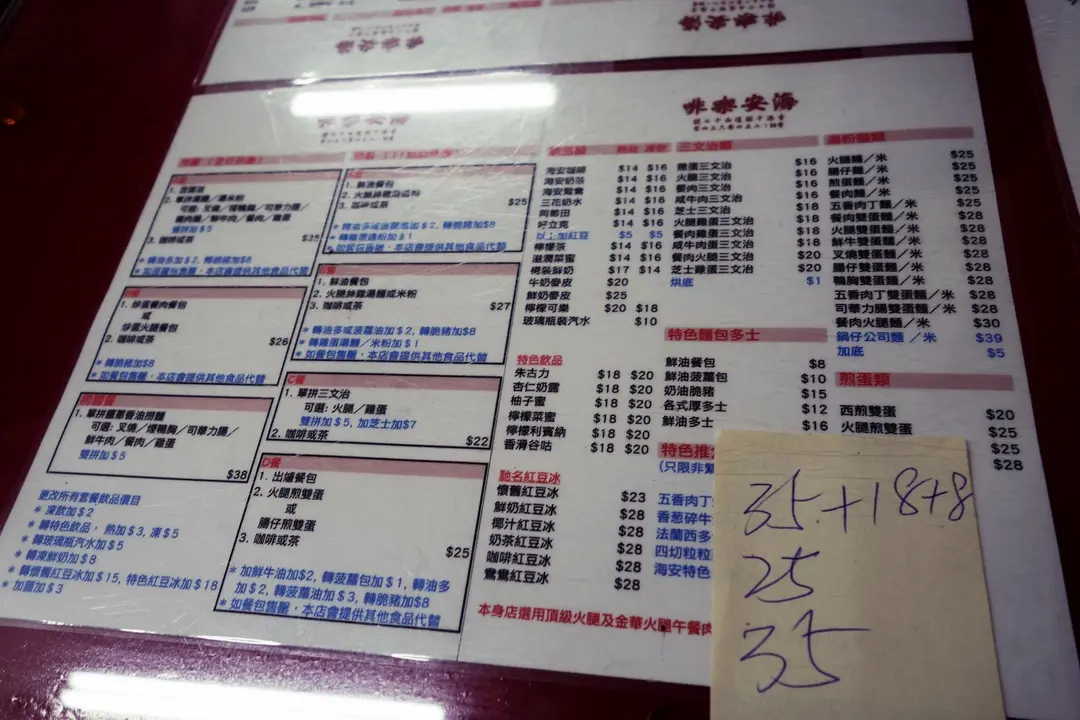 海安咖啡
三文治類
1. 單拼湯麵或湯米粉
可選: 叉燒／煙鴨胸／司華力腸／
$35
1. 鮮油餐包
3. 咖啡或茶
$25
1. 炒蛋餐肉餐包
或
炒蛋火腿餐包
2. 咖啡或茶
$26
* 轉脆豬加$8
* 如餐包售罄，本店會提供其他食品代替
1. 鮮油餐包
2. 火腿絲雞湯麵或米粉
3. 咖啡或茶
$27
* 轉多油或菠蘿油加$2, 轉脆豬加$8
* 轉雞蛋湯麵／米粉加$1
* 如餐包售罄，本店會提供其他食品代替
可選: 叉燒／煙鴨胸／司華力腸／
鮮牛肉／餐肉／雞蛋
雙拼加$5
$38
C餐
1. 單拼三文治
可選: 火腿／雞蛋
雙拼加$5, 加芝士加$7
2. 咖啡或茶
$22
D餐
1. 出爐餐包
2. 火腿煎雙蛋
或
腸仔煎雙蛋
3. 咖啡或茶
$25
* 加鮮牛油加$2, 轉菠蘿包加$1, 轉油多
加$2, 轉菠蘿油加$3, 轉脆豬加$8
* 如餐包售罄，本店會提供其他食品代替
更改所有套餐飲品價目
* 凍飲加$2
* 轉特色飲品， 熱加$3, 凍$5
* 轉玻璃瓶汽水加$5
* 轉凍鮮奶加$8
* 轉懷舊紅豆冰加$15, 特色紅豆冰加$18
* 加薑加$3
海安咖啡 $14 $16
海安奶茶 $14 $16
海安鴛鴦 $14 $16
三花奶水 $14 $16
阿華田 $14 $16
好立克 $14 $16
以上加紅豆 $5 $5
檸檬茶 $14 $16
滋潤菜蜜 $14 $16
樽裝鮮奶 $17 $14
牛奶麥皮 $20
鮮奶麥皮 $25
檸檬可樂 $20 $18
玻璃瓶裝汽水 $10
特色飲品
朱古力 $18 $20
杏仁奶露 $18 $20
柚子蜜 $18 $20
檸檬菜蜜 $18 $20
檸檬利賓納 $18 $20
香滑谷咕 $18 $20
馳名紅豆冰
懷舊紅豆冰 $23
鮮奶紅豆冰 $28
椰汁紅豆冰 $28
奶茶紅豆冰 $28
咖啡紅豆冰 $28
鴛鴦紅豆冰 $28
雞蛋三文治 $16
火腿三文治 $16
餐肉三文治 $16
咸牛肉三文治 $16
芝士三文治 $16
火腿雞蛋三文治 $18
餐肉雞蛋三文治 $18
咸牛肉蛋三文治 $18
餐肉火腿三文治 $20
芝士雞蛋三文治 $20
烘底 $1
特色麵包多士
鮮油餐包 $8
鮮油菠蘿包 $10
奶油脆豬 $15
各式厚多士 $12
鮮油多士 $16
(只限非繁
五香肉丁
香葱碎牛
法蘭西多
四切粒粒
海安特色
火腿麵／米 $25
腸仔麵／米 $25
煎蛋麵／米 $25
餐肉麵／米 $25
五香肉丁麵／米 $28
餐肉雙蛋麵／米 $28
火腿雙蛋麵／米 $28
鮮牛雙蛋麵／米 $28
叉燒雙蛋麵／米 $28
腸仔雙蛋麵／米 $28
鴨胸雙蛋麵／米 $28
五香肉丁雙蛋麵／米 $28
司華力腸雙蛋麵／米 $28
餐肉火腿麵／米 $30
鍋仔公司麵／米 $39
加底 $5
煎蛋類
西煎雙蛋 $20
火腿煎雙蛋 $25
$25
$28
本身店選用頂級火腿及金華火腿午餐肉
35+18+8
25
35